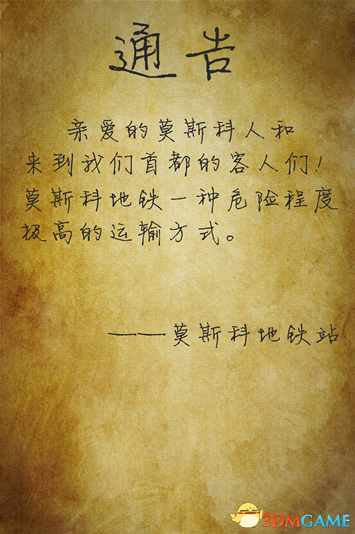 通告
亲爱的莫斯科人和
来到我们首都的客人们！
莫斯科地铁一种危险程度
极高的运输方式。
——莫斯科地铁站
3DMGAME